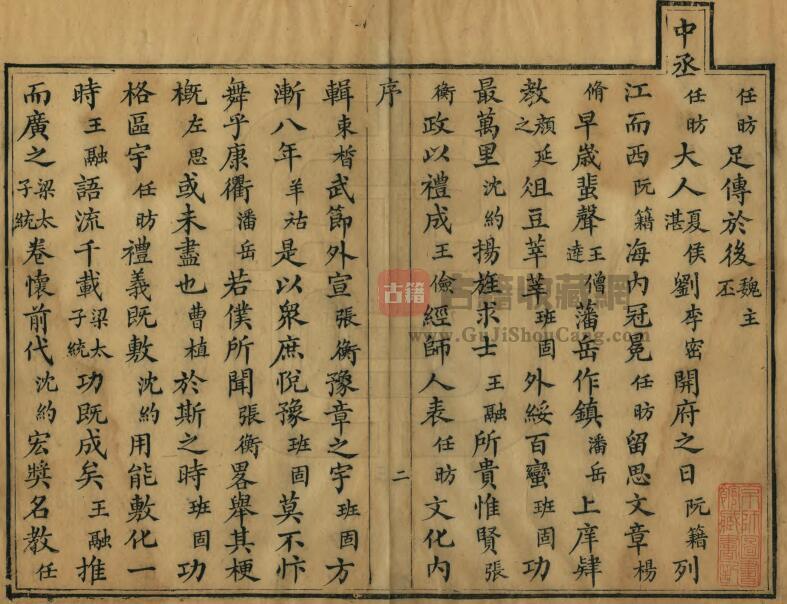 任昉足傳於後魏主丕
中丞任昉大人夏侯湛劉李密開府之日阮籍列
江而西阮籍海內冠冕任昉留思文章楊
脩早歲蜚聲王僧達藩岳作鎮潘岳上庠肄
教顏延之俎豆莘莘班固外綏百蠻班固功
最萬里沈約揚旌求士王融所貴惟賢張
衡政以禮成王儉經師人表任昉文化內
序
二
輯束晳武節外宣張衡豫章之宇班固方
漸八年羊祜是以衆庶悅豫班固莫不忭
舞乎康衢潘岳若僕所聞張衡畧舉其梗
槩左思或未盡也曹植於斯之時班固功
格區宇任昉禮義既敷沈約用能敷化一
時王融語流千載梁太子統功既成矣王融推
而廣之梁太子統卷懷前代沈約宏奬名教任
古籍
古籍收藏網
www.GuJiShouCang.com